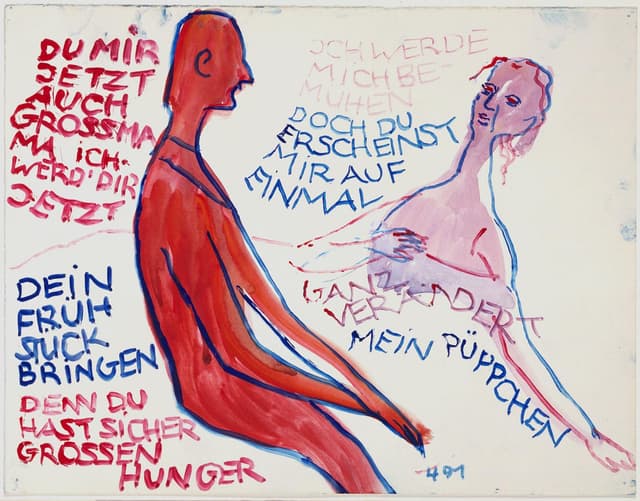 DU MIR
JETZT
AUCH
GROSSMA
MA ICH
WERD' DIR
JETZT
DEIN
FRÜH
STÜCK
BRINGEN
DENN DU
HAST SICHER
GROSSEN
HUNGER
ICH WERDE
MICH BE-
MÜHEN
DOCH DU
ERSCHEINST
MIR AUF
EINMAL
GANZ
VERÄNDERT
MEIN PÜPPCHEN
491